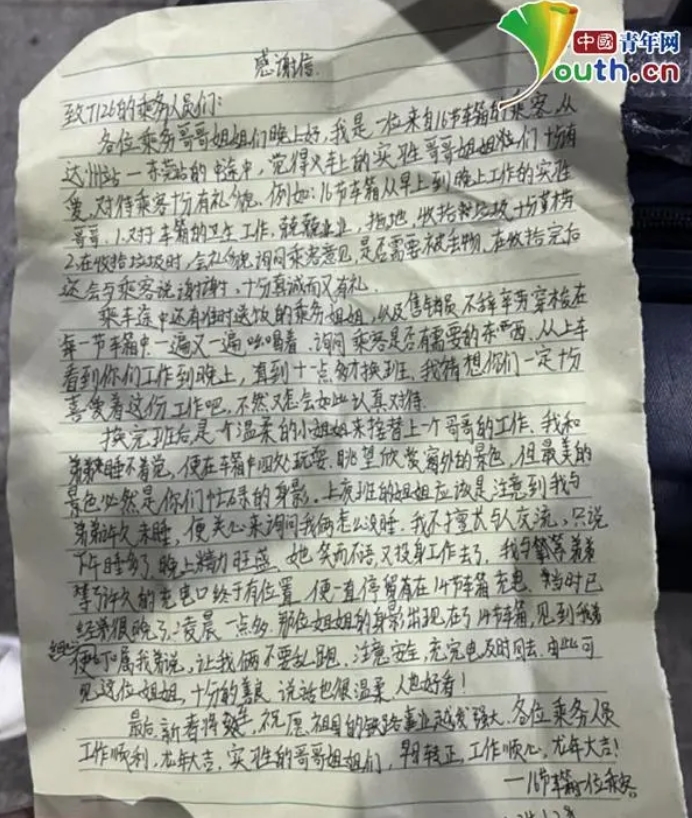 中國青年网
Youth.cn
感谢信.
致T126的乘务人员们:
各位乘务哥哥姐姐们晚上好,我是一位来自16节车箱的乘客,从
达州站—东莞站的中途中,觉得火车上的实习生哥哥姐姐们十分有
爱,对待乘客十分有礼貌、例如:16节车箱从早上到晚上工作的实习生
哥哥.1.对于车箱的卫生工作,兢兢业业,拖地、收拾垃圾十分勤劳
2.在收拾垃圾时,会礼貌询问乘客意见,是否需要被丢物、在收拾完后
还会与乘客说谢谢,十分真诚而又有礼.
乘车途中还有准时送饭的乘务姐姐,以及售销员不辞辛劳穿梭在
每一节车箱中一遍又一遍吆喝着.询问乘客是否有需要的东西.从上车
看到你们工作到晚上,直到十一点多才换班.我猜想你们一定十分
喜爱着这份工作吧,不然又怎会如此认真对待.
换完班后,是一个温柔的小姐姐来接替上一个哥哥的工作.我和
弟弟睡不着觉,便在车箱中四处玩耍.眺望欣赏窗外的景色,但最美的
景色必然是你们忙碌的身影.上夜班的姐姐应该是注意到我与
弟弟许久未睡,便关心来询问我俩怎么没睡.我不擅长与人交流,只说
下午睡多了,晚上精力旺盛.她笑而不语又投身工作去了,我与弟弟
等了许久的充电口终于有位置,便一直停留着在14节车箱充电.当时已
经很晚了,凌晨一点多.那位姐姐的身影出现在了14节车箱,见到我弟
便叮嘱我弟说,让我俩不要乱跑,注意安全,充完电及时回去.由此可
见这位姐姐,十分的善良,说话也很温柔人也好看!
最后,新春将至,祝愿祖国的铁路事业越发强大.各位乘务人员
工作顺利,龙年大吉.实习生的哥哥姐姐们,早日转正,工作顺心,龙年大吉!
—16节车箱一位乘客